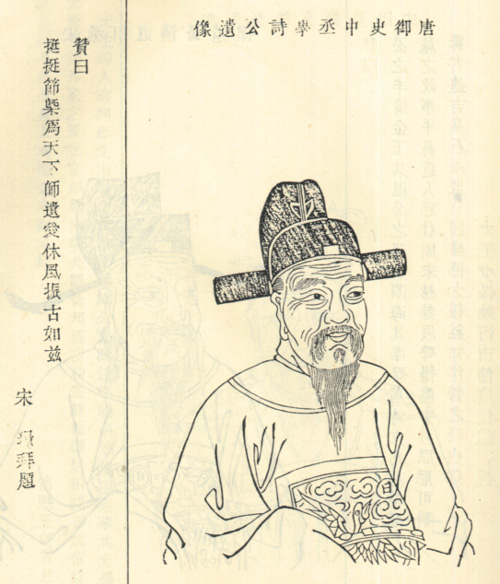 唐御史中丞詩公遺像
贊曰
挺挺節槩爲天下師遺愛休風振古如兹
宋 拜題